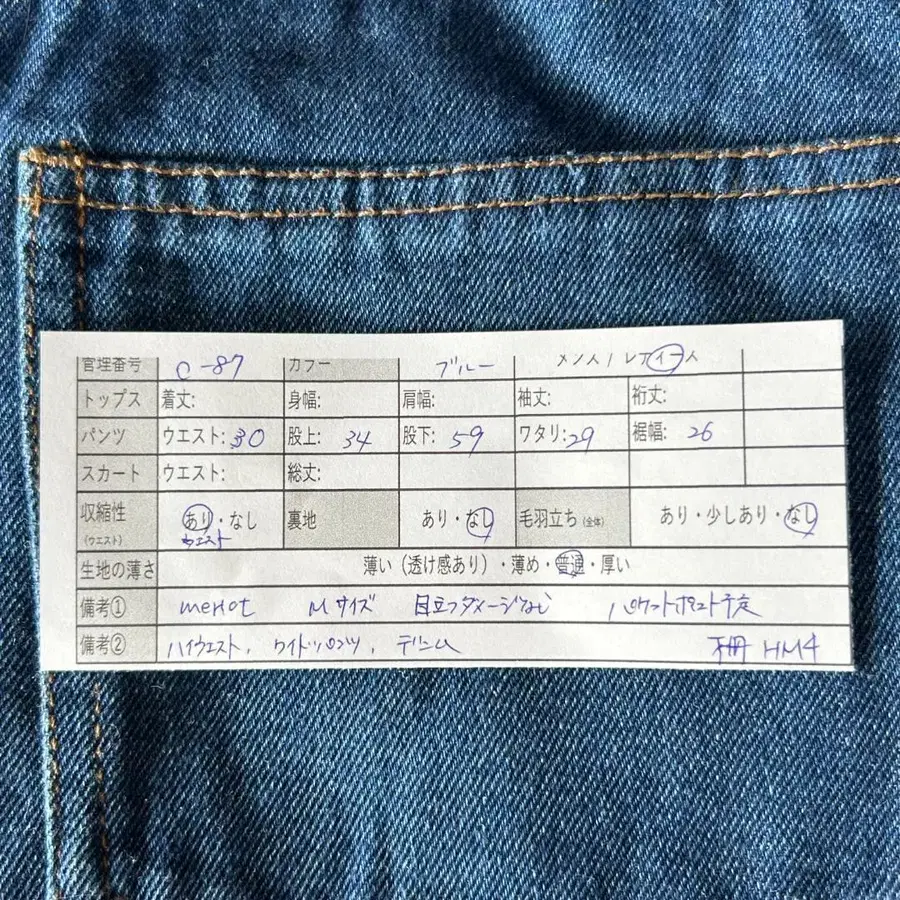 管理番号 C-87 カラー ブルー メンズ / レディース
トップス 着丈: 身幅: 肩幅: 袖丈: 裄丈:
パンツ ウエスト: 30 股上: 34 股下: 59 ワタリ: 29 裾幅: 26
スカート ウエスト: 総丈:
収縮性 (ウエスト) あり・なし ウエスト 裏地 あり・なし 毛羽立ち (全体) あり・少しあり・なし
生地の薄さ 薄い(透け感あり)・薄め・普通・厚い
備考① merlot Mサイズ 目立つダメージなし パケットポスト予定
備考② ハイウエスト, ワイドパンツ, デニム 棚 HM4